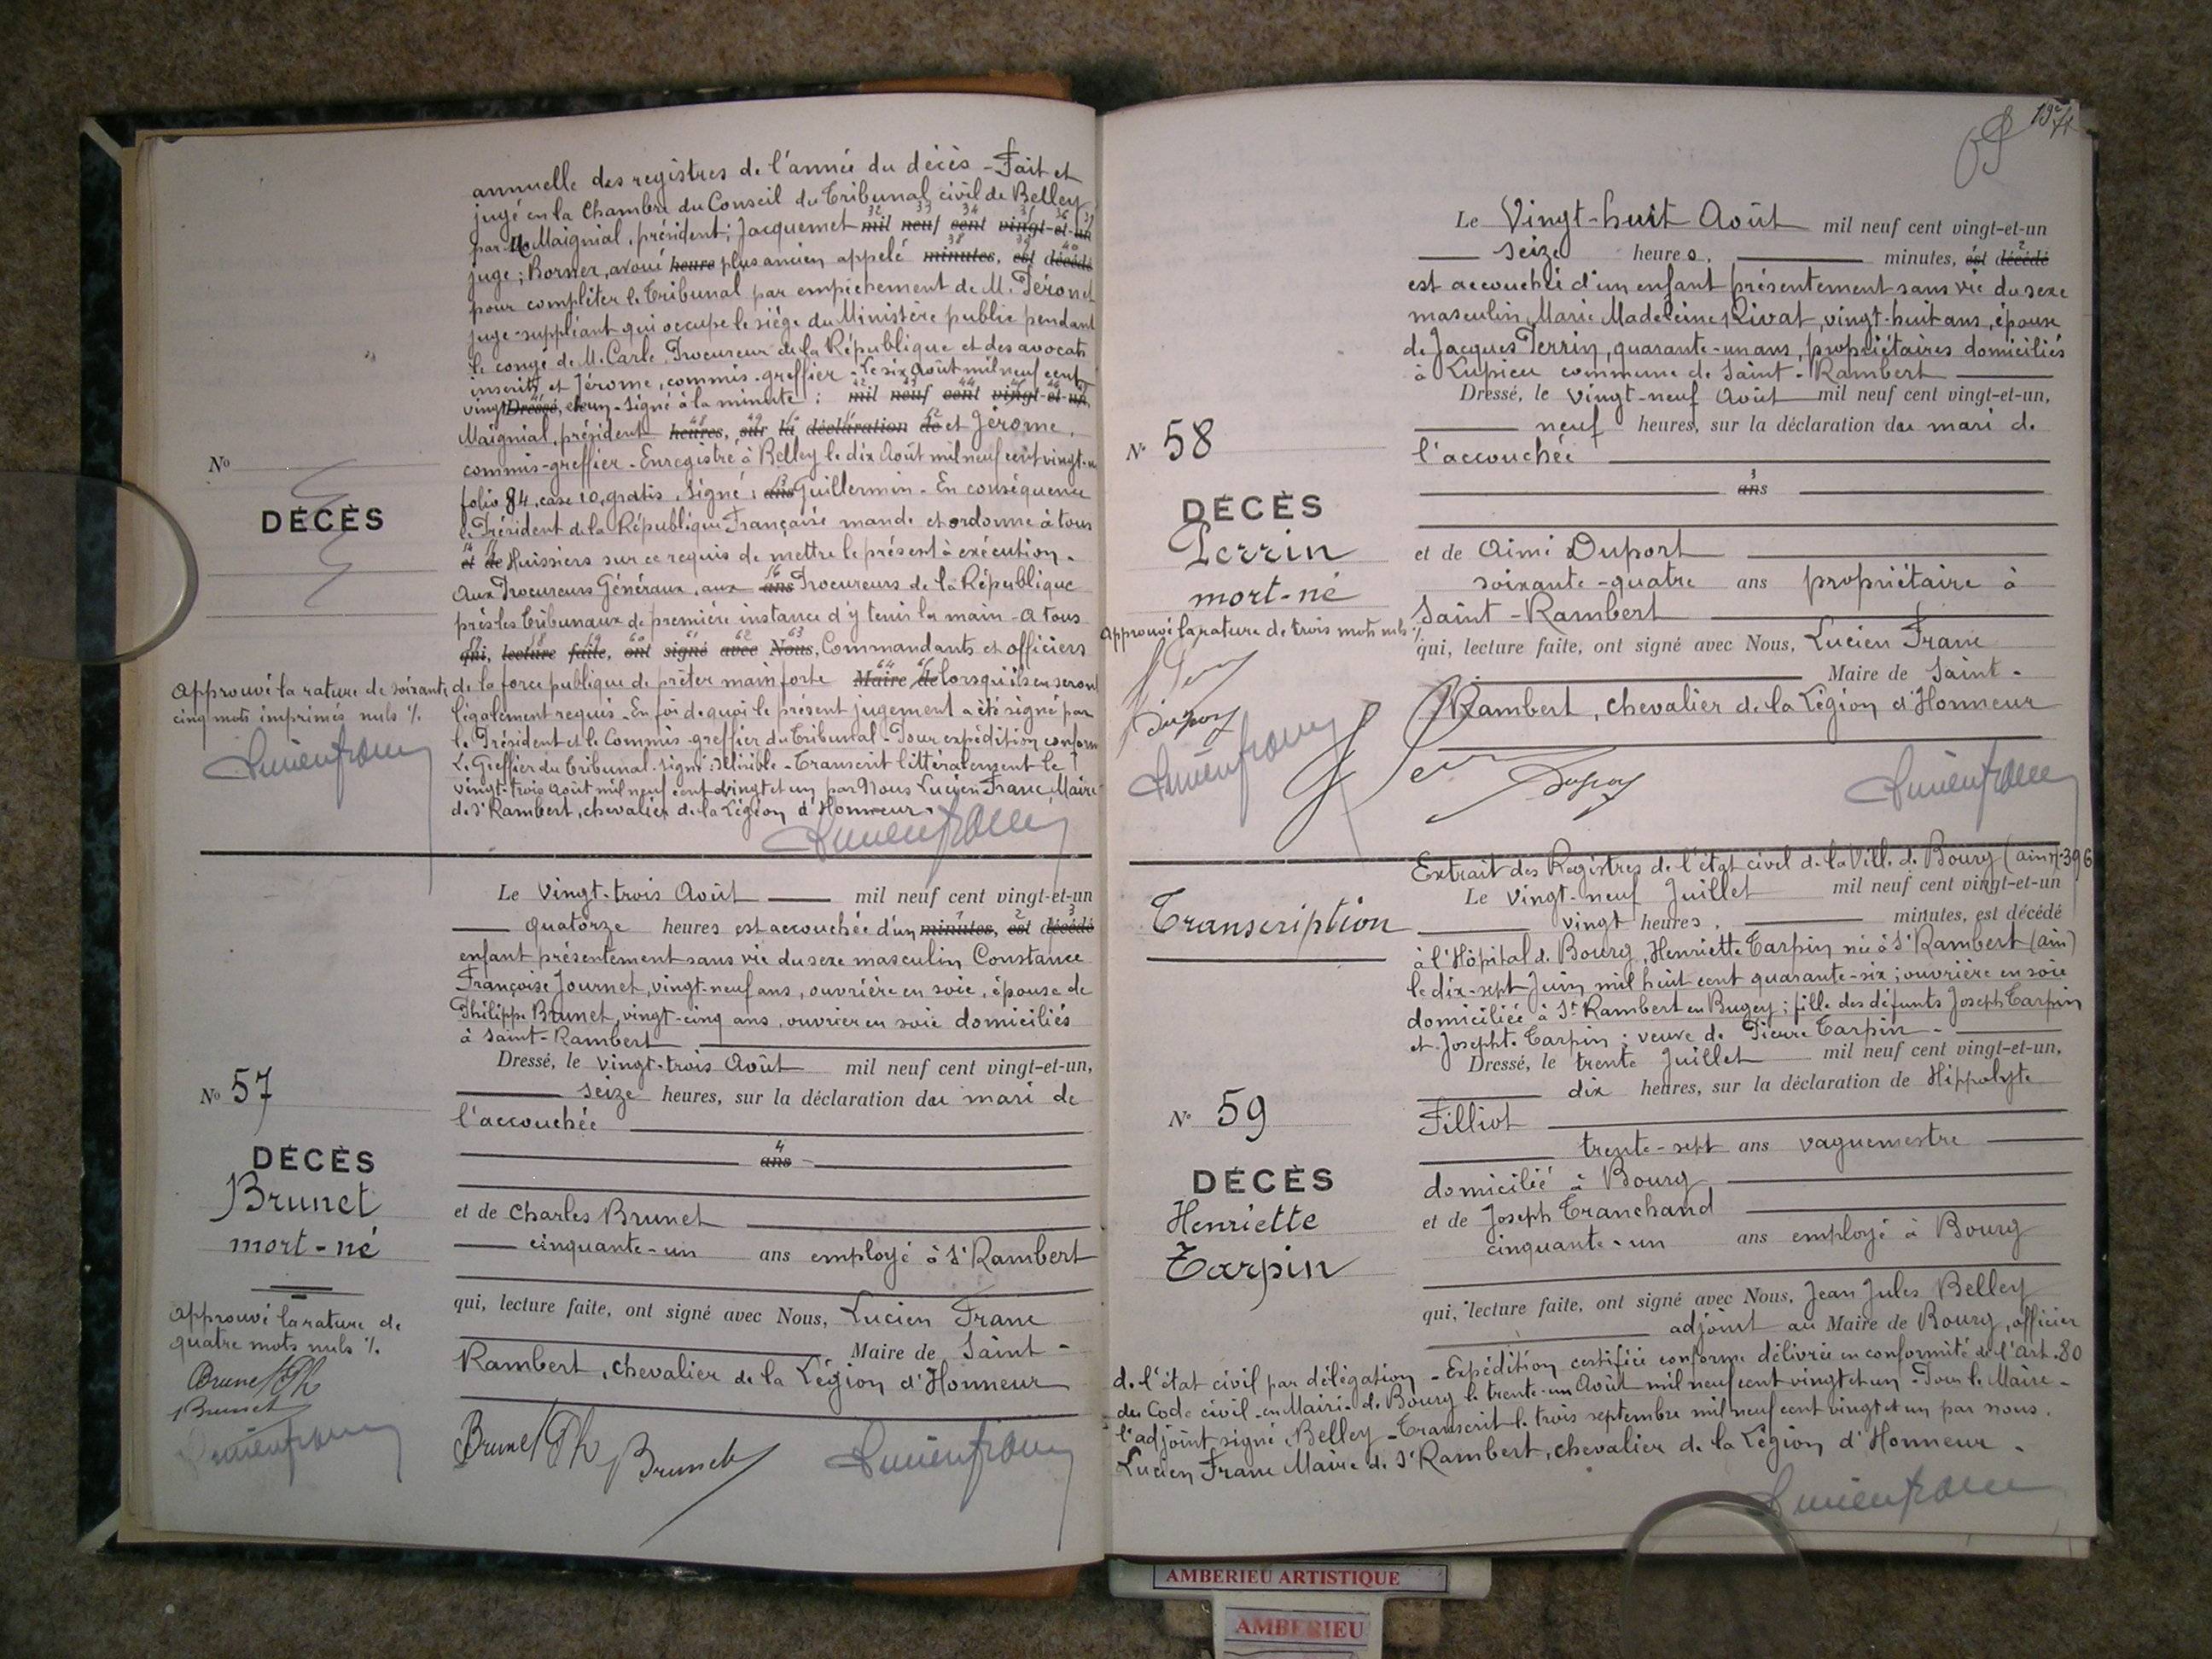 annuelle des registres de l'année du décès - Fait et
jugé en la Chambre du Conseil du Tribunal civil de Belley
par M. Maignial, président ; Jacquemet mil neuf cent vingt-et-un
juge ; Borner, avoué heure plus ancien appelé minutes, est décédé
pour compléter le Tribunal par empêchement de M. Péronet
juge-suppléant qui occupe le siège du Ministère public pendant
le congé de M. Carle, Procureur de la République et des avocats
inscrits et Jérome, commis-greffier - Le six Août mil neuf cent
vingt Dressé, et un - Signé à la minute : mil neuf cent vingt-et-un,
Maignial, président heures, sur la déclaration de et Jérome,
commis-greffier - Enregistré à Belley le dix Août mil neuf cent vingt-un
folio 84, case 10, gratis, signé : ans Guillermin - En conséquence
le Président de la République Française mande et ordonne à tous
et de Huissiers sur ce requis de mettre le présent à exécution -
Aux Procureurs Généraux, aux ans Procureurs de la République
près les Tribunaux de première instance d'y tenir la main - A tous
qui, lecture faite, ont signé avec Nous, Commandants et officiers
de la force publique de prêter main forte Maire de lorsqu'ils en seront
légalement requis - En foi de quoi le présent jugement a été signé par
le Président et le Commis-greffier du Tribunal - Pour expédition conforme
Le Greffier du Tribunal - signé : illisible - Transcrit littéralement le
vingt-trois Août mil neuf cent vingt et un par Nous Lucien Franc, Maire
de St Rambert, chevalier de la Légion d'Honneur -
No
DÉCÈS
Approuvé la rature de soixante
cinq mots imprimés nuls %.
Lucien Franc
Lucien Franc
Le Vingt-trois Août mil neuf cent vingt-et-un
quatorze heures est accouchée d'un minutes, est décédé
enfant présentement sans vie du sexe masculin Constance
Françoise Journet, vingt-neuf ans, ouvrière en soie, épouse de
Philippe Brunet, vingt-cinq ans, ouvrier en soie domiciliés
à Saint-Rambert
Dressé, le vingt-trois Août mil neuf cent vingt-et-un,
seize heures, sur la déclaration du mari de
l'accouchée
ans
et de Charles Brunet
cinquante-un ans employé à St Rambert
qui, lecture faite, ont signé avec Nous, Lucien Franc
Maire de Saint-
Rambert, chevalier de la Légion d'Honneur
No 57
DÉCÈS
Brunet
mort-né
Approuvé la rature de
quatre mots nuls %.
Brunet Ph
Brunet
Lucien Franc
Brunet Ph Brunet Lucien Franc
Le Vingt-huit Août mil neuf cent vingt-et-un
seize heures, minutes, est décédé
est accouchée d'un enfant présentement sans vie du sexe
masculin Marie Madeleine Rivat, vingt-huit ans, épouse
de Jacques Perrin, quarante-un ans, propriétaires domiciliés
à Lupieu commune de Saint-Rambert
Dressé, le vingt-neuf Août mil neuf cent vingt-et-un,
neuf heures, sur la déclaration du mari de
l'accouchée
ans
et de Aimé Duport
soixante-quatre ans propriétaire à
Saint-Rambert
qui, lecture faite, ont signé avec Nous, Lucien Franc
Maire de Saint-
Rambert, chevalier de la Légion d'Honneur
No 58
DÉCÈS
Perrin
mort-né
Approuvé la rature de trois mots nuls %.
Duport
Lucien Franc
Duport
Lucien Franc
Extrait des Registres de l'état civil de la Ville de Bourg (ain) 396
Le Vingt-neuf Juillet mil neuf cent vingt-et-un
vingt heures, minutes, est décédé
à l'Hôpital de Bourg, Henriette Tarpin née à St Rambert (ain)
le dix-sept Juin mil huit cent quarante-six ; ouvrière en soie
domiciliée à St Rambert en Bugey ; fille des défunts Joseph Tarpin
et Josephte Tarpin ; veuve de Pierre Tarpin -
Dressé, le trente Juillet mil neuf cent vingt-et-un,
dix heures, sur la déclaration de Hippolyte
Filliot
trente-sept ans vaguemestre
domicilié à Bourg
et de Joseph Tranchand
cinquante-un ans employé à Bourg
qui, lecture faite, ont signé avec Nous, Jean Jules Belley
adjoint au Maire de Bourg, officier
de l'état civil par délégation - Expédition certifiée conforme délivrée en conformité de l'Art. 80
du Code civil - en Mairie de Bourg le trente-un Août mil neuf cent vingt et un - Pour le Maire -
l'adjoint signé : Belley - Transcrit le trois septembre mil neuf cent vingt et un par nous,
Lucien Franc Maire de St Rambert, chevalier de la Légion d'Honneur -
Lucien Franc
Transcription
No 59
DÉCÈS
Henriette
Tarpin
AMBERIEU ARTISTIQUE
AMBERIEU